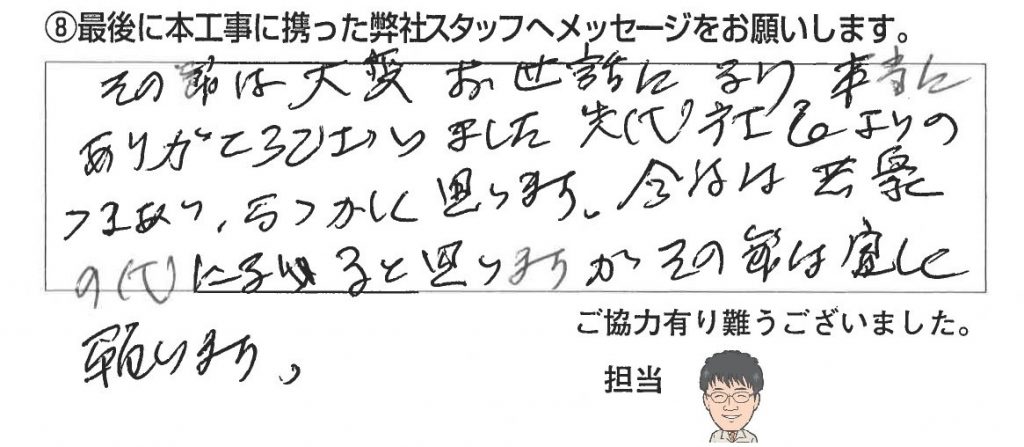 ⑧最後に本工事に携った弊社スタッフへメッセージをお願いします。
その節は大変お世話になり本当に
ありがとうございました 先代社長よりの
つきあい、なつかしく思います。今後は若松
の代になると思いますがその節は宜しく
願います。
ご協力有り難うございました。
担当